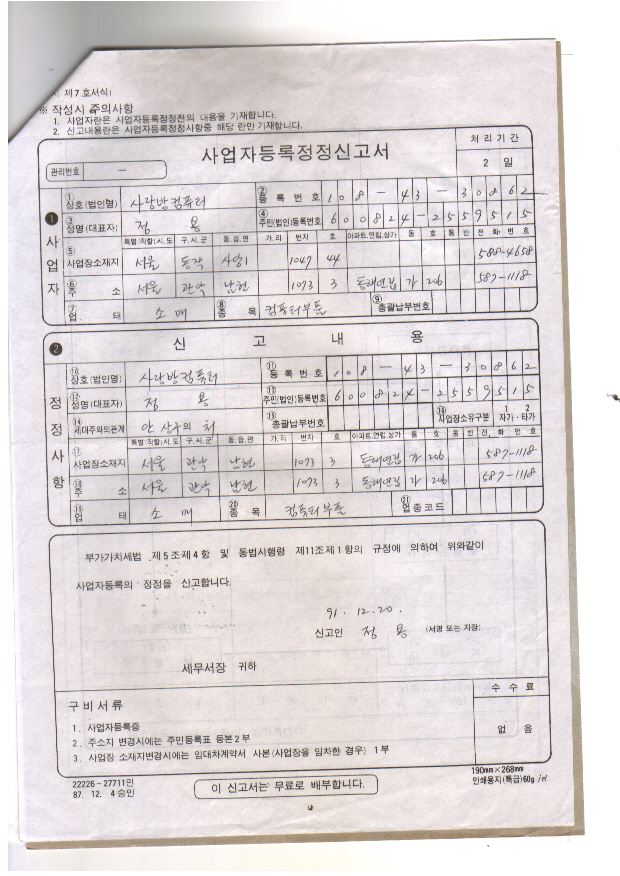 제 7 호서식)
※ 작성시 주의사항
1. 사업자란은 사업자등록정정전의 내용을 기재합니다.
2. 신고내용란은 사업자등록정정사항중 해당 란만 기재합니다.
관리번호 —
사업자등록정정신고서
처 리 기 간
2 일
❶ 사업자
① 상호(법인명) 사랑방컴퓨터 ② 등 록 번 호 108-43-30862
③ 성명(대표자) 정 용 ④ 주민(법인)등록번호 600824-2559515
특별(직할)시,도 구,시,군 동,읍,면 가,리 번지 호 아파트,연립,상가 동 호 통 반 전 화 번 호
⑤ 사업장소재지 서울 동작 사당1 1047 44 588-4658
⑥ 주 소 서울 관악 남현 1073 3 동해연립 가 206 587-1118
⑦ 업 태 소 매 ⑧ 종 목 컴퓨터부품 ⑨ 총괄납부번호
❷ 신 고 내 용
정정사항
⑩ 상호(법인명) 사랑방컴퓨터 ⑪ 등 록 번 호 108-43-30862
⑫ 성명(대표자) 정 용 ⑬ 주민(법인)등록번호 600824-2559515
⑭ 세대주와의관계 안 상구의 처 ⑮ 총괄납부번호 ⑯ 사업장소유구분 1 자가 · 2 타가
특별(직할)시,도 구,시,군 동,읍,면 가,리 번지 호 아파트,연립,상가 동 호 통 반 전 화 번 호
⑰ 사업장소재지 서울 관악 남현 1073 3 동해연립 가 206 587-1118
⑱ 주 소 서울 관악 남현 1073 3 동해연립 가 206 587-1118
⑲ 업 태 소 매 ⑳ 종 목 컴퓨터부품 ㉑ 업 종 코 드
부가가치세법 제5조제4항 및 동법시행령 제11조제1항의 규정에 의하여 위와같이
사업자등록의 정정을 신고합니다.
91. 12. 20.
신고인 정 용 (서명 또는 지장)
세무서장 귀하
구 비 서 류
수 수 료
없 음
1. 사업자등록증
2. 주소지 변경시에는 주민등록표 등본 2 부
3. 사업장 소재지변경시에는 임대차계약서 사본(사업장을 임차한 경우) 1 부
22226-27711민
87. 12. 4 승인
이 신고서는 무료로 배부합니다.
190mm×268mm
인쇄용지(특급)60g /㎡